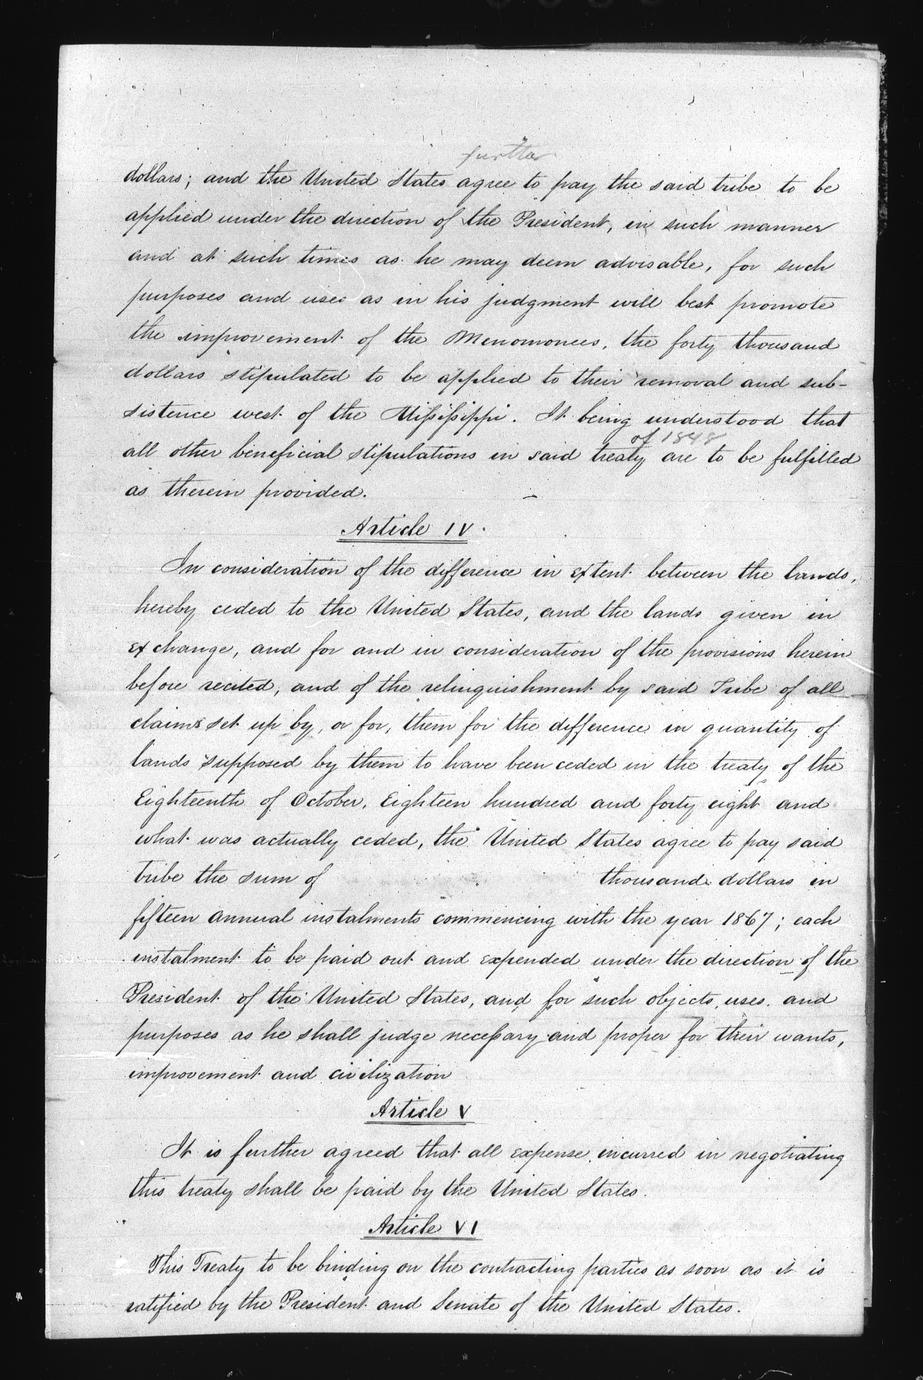 further
dollars; and the United States agree to pay the said tribe to be
applied under the direction of the President, in such manner
and at such times as he may deem advisable, for such
purposes and uses as in his judgment will best promote
the improvement of the Menomonees, the forty thousand
dollars stipulated to be applied to their removal and sub-
sistence west of the Mississippi. It being understood that
of 1848
all other beneficial stipulations in said treaty are to be fulfilled
as therein provided.
Article IV.
In consideration of the difference in extent between the lands,
hereby ceded to the United States, and the lands given in
exchange, and for and in consideration of the provisions herein
before recited, and of the relinquishment by said Tribe of all
claims set up by, or for, them for the difference in quantity of
lands supposed by them to have been ceded in the treaty of the
Eighteenth of October, Eighteen hundred and forty eight and
what was actually ceded, the United States agree to pay said
tribe the sum of thousand dollars in
fifteen annual instalments commencing with the year 1867; each
instalment to be paid out and expended under the direction of the
President of the United States, and for such objects, uses and
purposes as he shall judge necessary and proper for their wants,
improvement and civilization
Article V
It is further agreed that all expense incurred in negotiating
this treaty shall be paid by the United States.
Article VI
This Treaty to be binding on the contracting parties as soon as it is
ratified by the President and Senate of the United States.